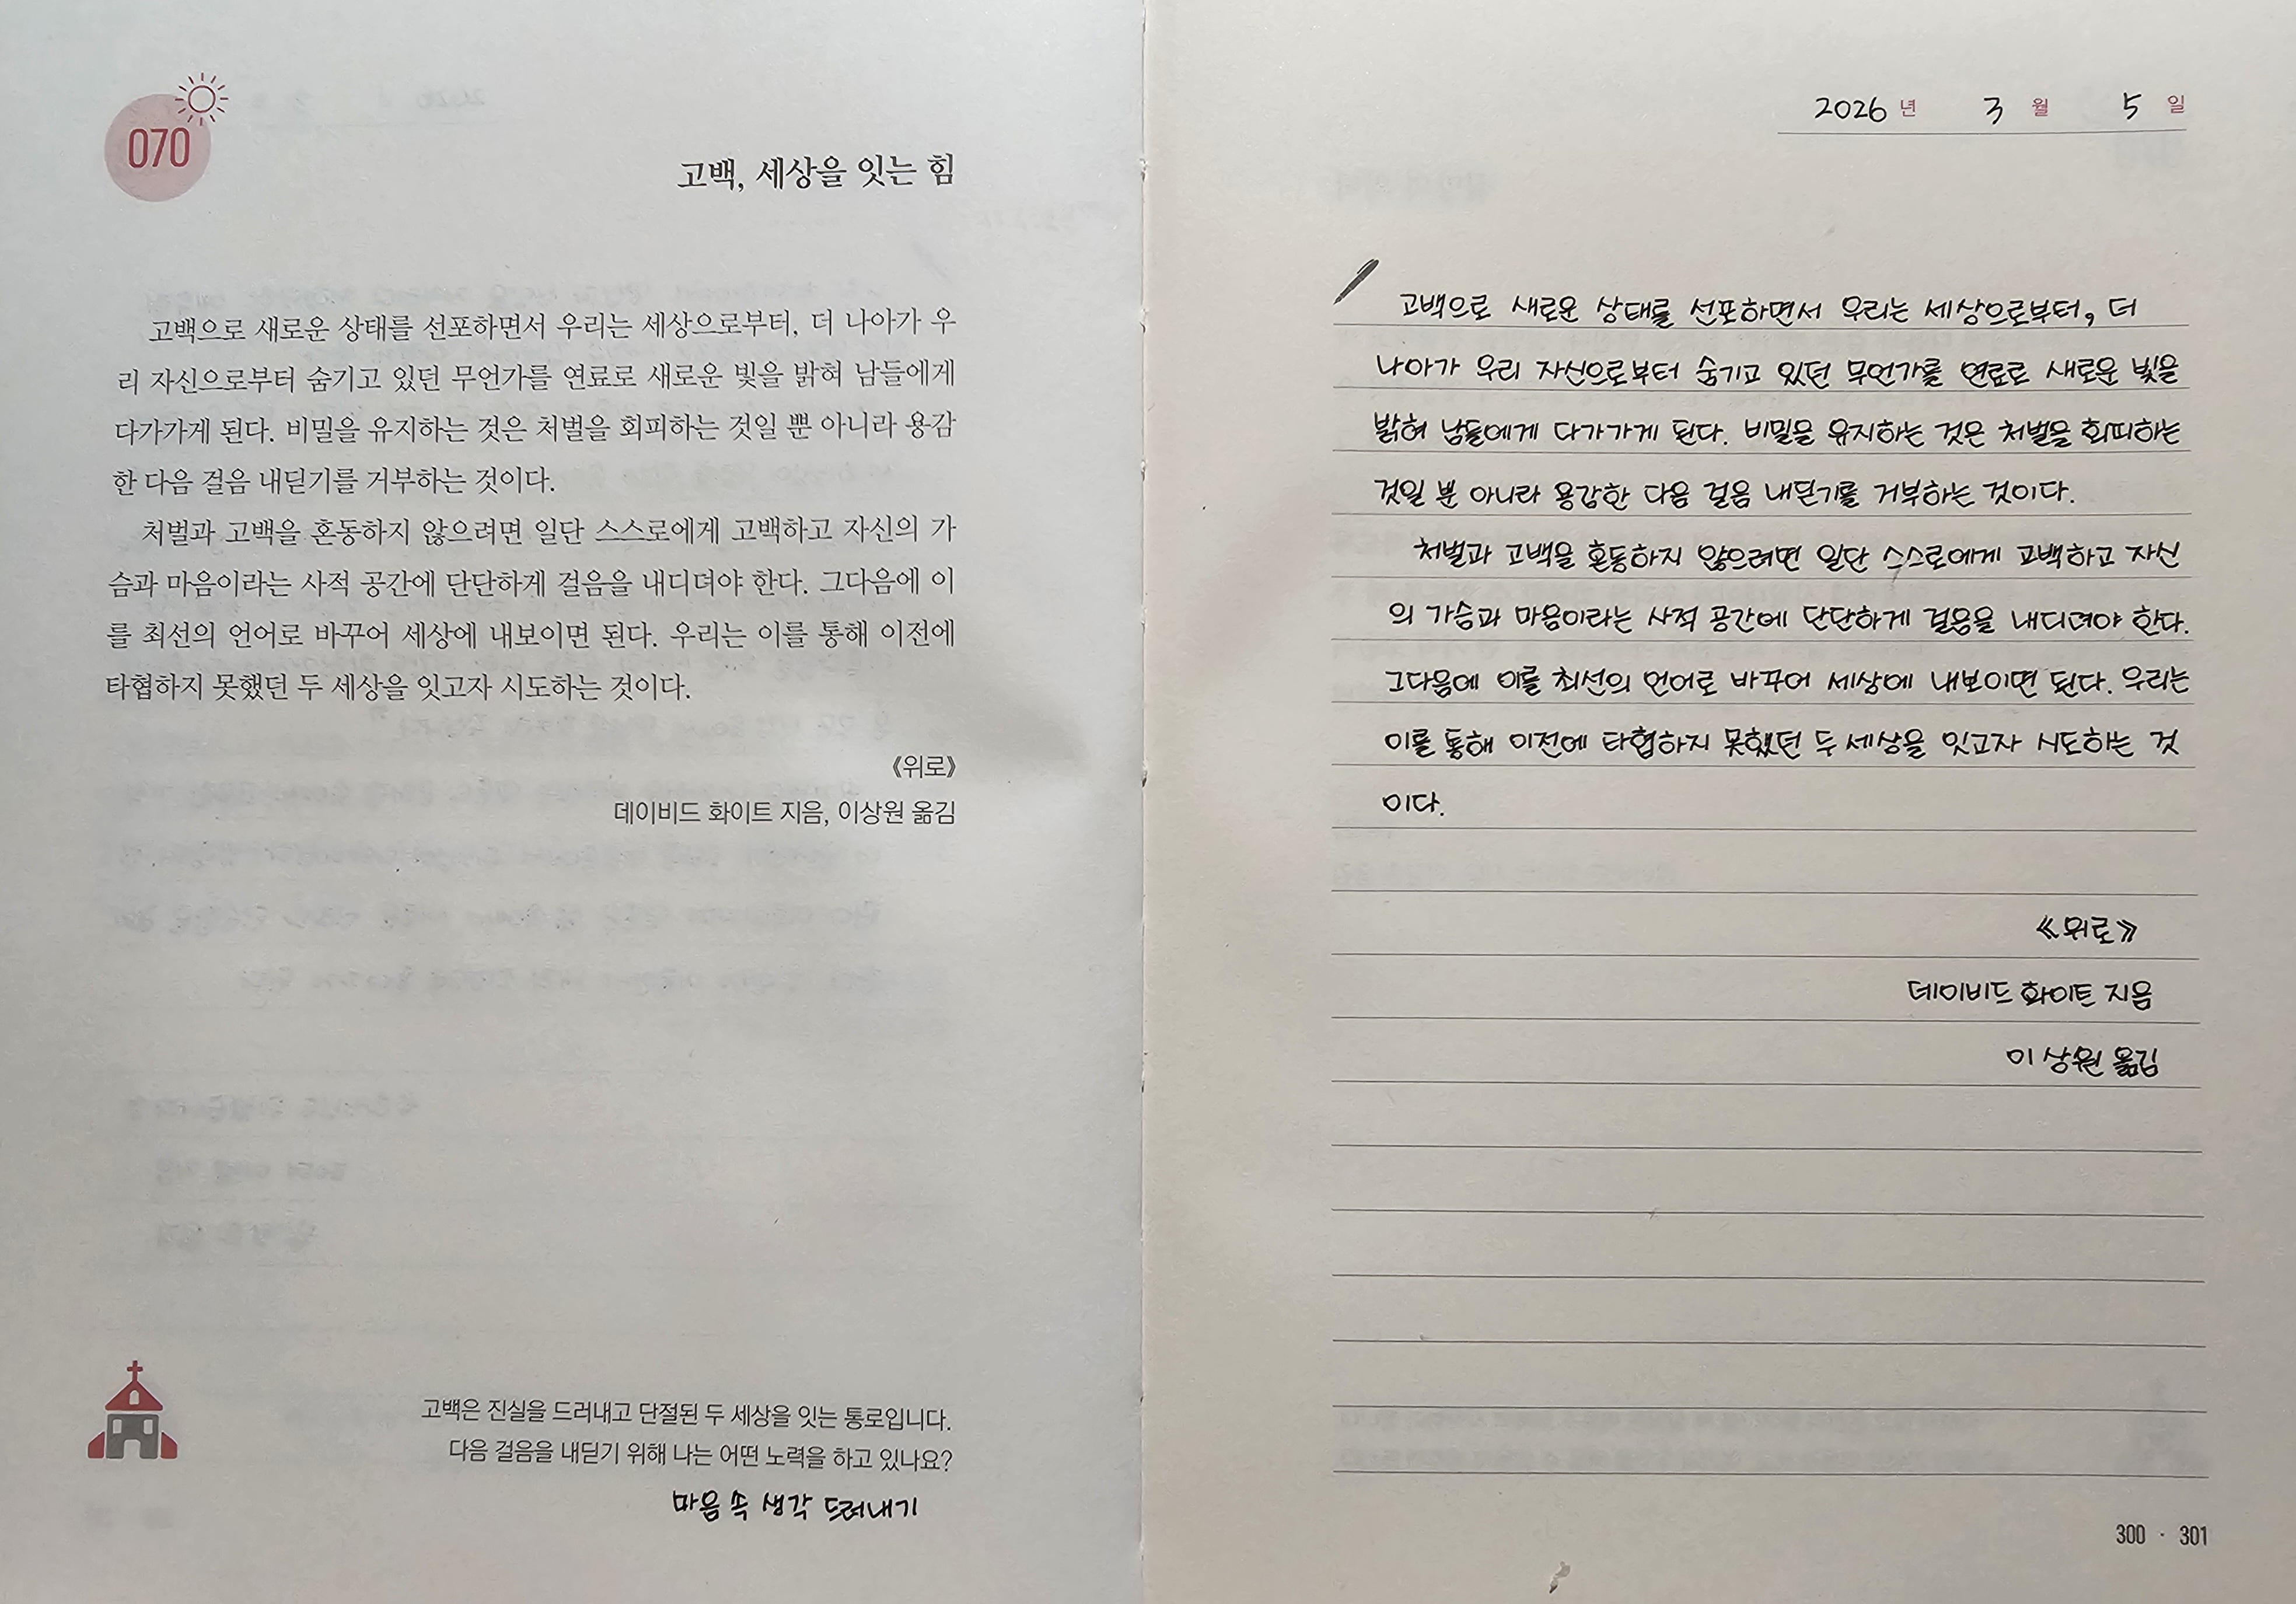 070
고백, 세상을 잇는 힘
고백으로 새로운 상태를 선포하면서 우리는 세상으로부터, 더 나아가 우
리 자신으로부터 숨기고 있던 무언가를 연료로 새로운 빛을 밝혀 남들에게
다가가게 된다. 비밀을 유지하는 것은 처벌을 회피하는 것일 뿐 아니라 용감
한 다음 걸음 내딛기를 거부하는 것이다.
처벌과 고백을 혼동하지 않으려면 일단 스스로에게 고백하고 자신의 가
슴과 마음이라는 사적 공간에 단단하게 걸음을 내디뎌야 한다. 그다음에 이
를 최선의 언어로 바꾸어 세상에 내보이면 된다. 우리는 이를 통해 이전에
타협하지 못했던 두 세상을 잇고자 시도하는 것이다.
《위로》
데이비드 화이트 지음, 이상원 옮김
고백은 진실을 드러내고 단절된 두 세상을 잇는 통로입니다.
다음 걸음을 내딛기 위해 나는 어떤 노력을 하고 있나요?
마음 속 생각 드러내기
2026 년 3 월 5 일
고백으로 새로운 상태를 선포하면서 우리는 세상으로부터, 더
나아가 우리 자신으로부터 숨기고 있던 무언가를 연료로 새로운 빛을
밝혀 남들에게 다가가게 된다. 비밀을 유지하는 것은 처벌을 회피하는
것일 뿐 아니라 용감한 다음 걸음 내딛기를 거부하는 것이다.
처벌과 고백을 혼동하지 않으려면 일단 스스로에게 고백하고 자신
의 가슴과 마음이라는 사적 공간에 단단하게 걸음을 내디뎌야 한다.
그다음에 이를 최선의 언어로 바꾸어 세상에 내보이면 된다. 우리는
이를 통해 이전에 타협하지 못했던 두 세상을 잇고자 시도하는 것
이다.
《위로》
데이비드 화이트 지음
이상원 옮김
300 · 301